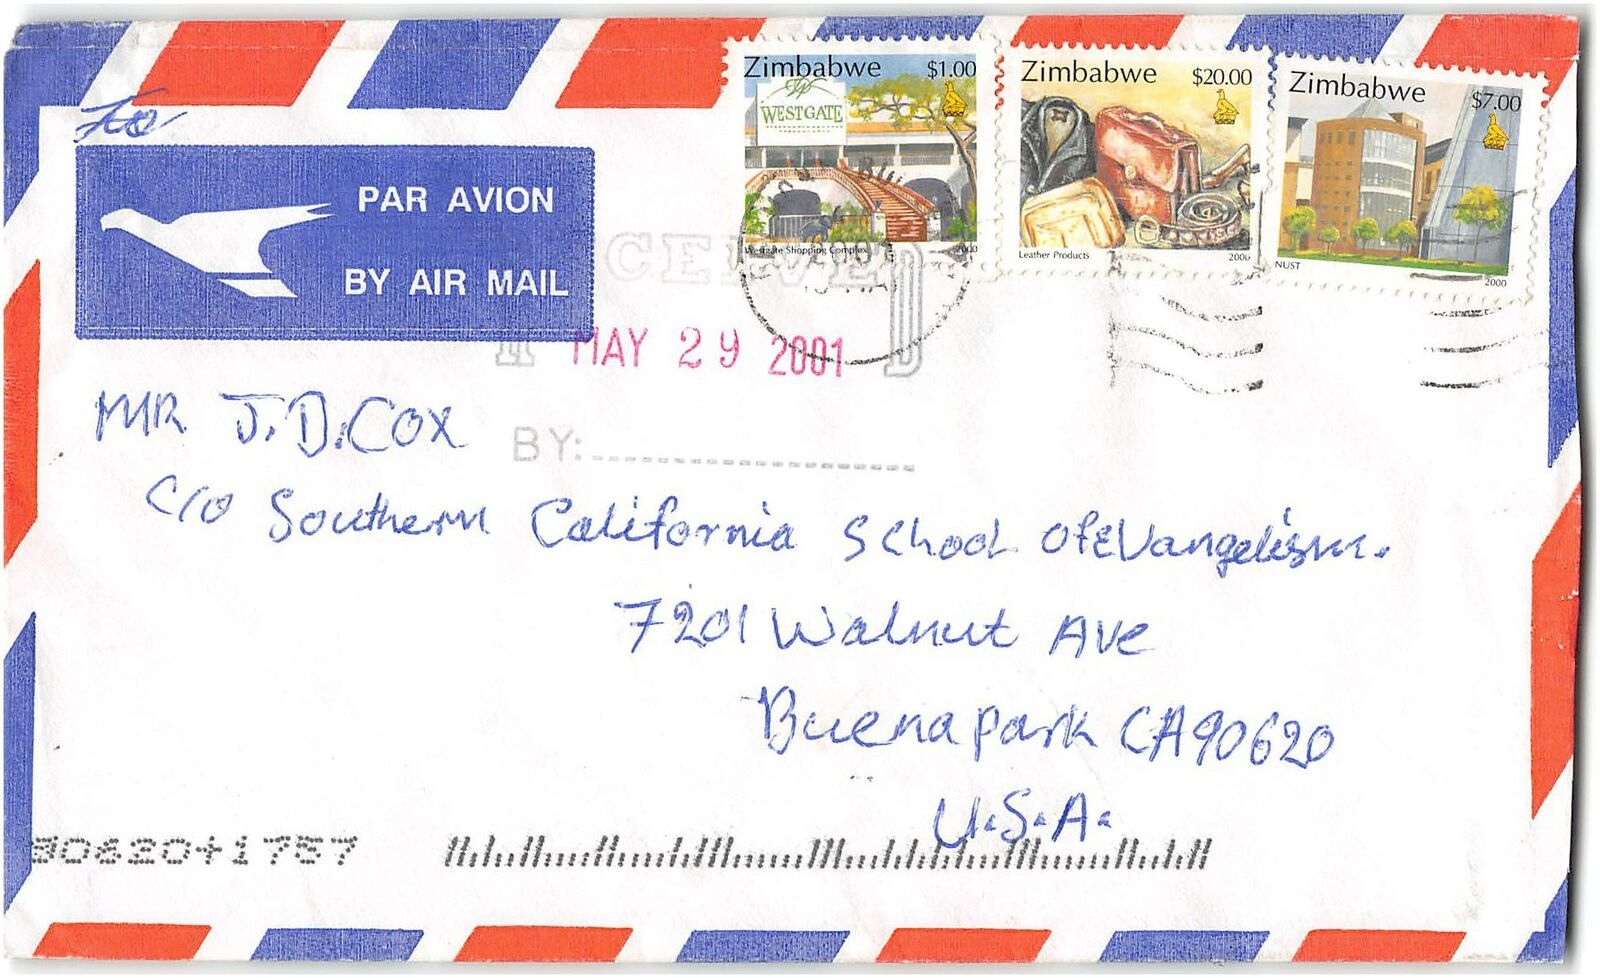 Zimbabwe $1.00
WESTGATE
Westgate Shopping Complex 2000
Zimbabwe $20.00
Leather Products 2000
Zimbabwe $7.00
NUST 2000
PAR AVION
BY AIR MAIL
RECEIVED
MAY 29 2001
BY:
MR J.D.COX
C/O Southern California School Of Evangelism.
7201 Walnut Ave
Buena Park CA 90620
U.S.A.
90620+1757